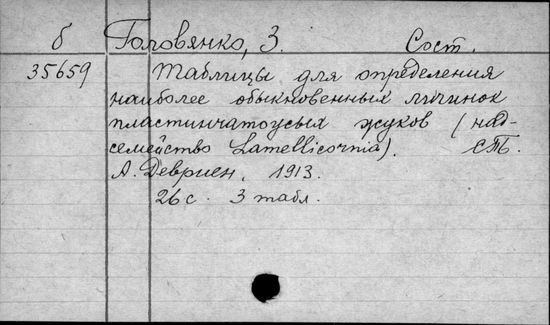 б Головянко, З. Сост.
35659 Таблицы для определения
наиболее обыкновенных личинок
пластинчатоусых жуков (над-
семейство Lamellicornia). СПб.
А. Девриен, 1913.
26 с. 3 табл.